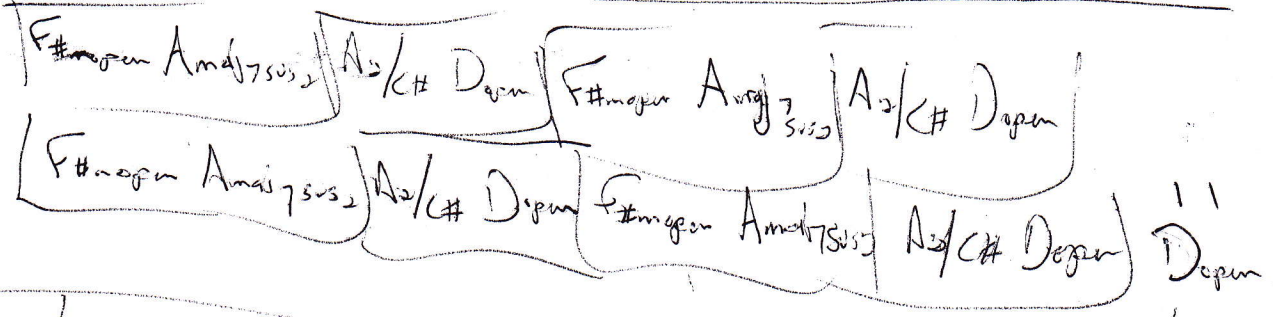 F#mopen Amaj7sus2 A2/C# Dopen F#mopen Amaj7sus2 A2/C# Dopen
F#mopen Amaj7sus2 A2/C# Dopen F#mopen Amaj7sus2 A2/C# Dopen Dopen